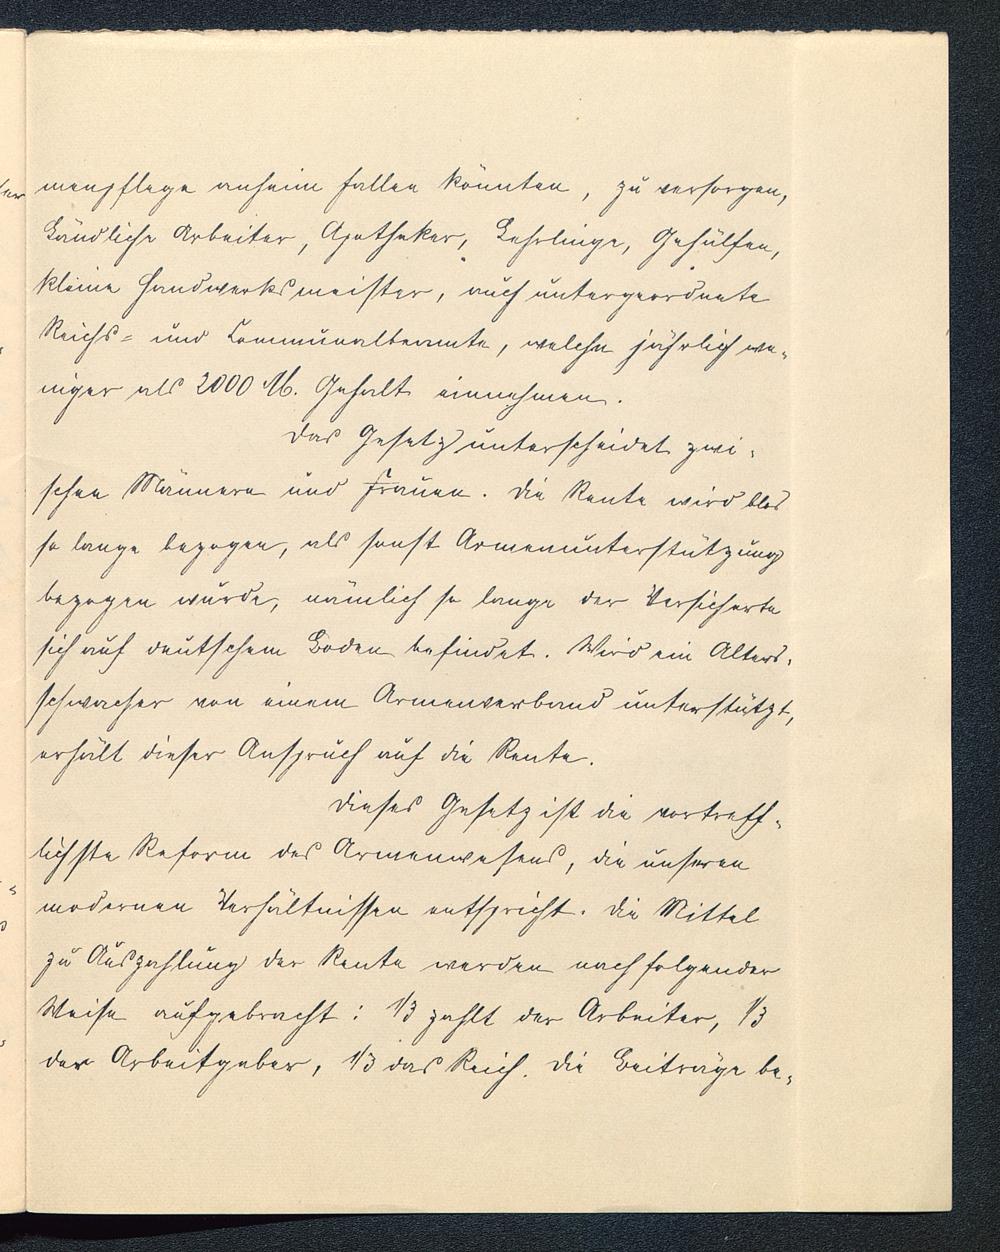 menpflege anheim fallen könnten, zu versorgen,
Ländliche Arbeiter, Apotheker, Lehrlinge, Gehülfen,
kleine Handwerksmeister, auch untergeordnete
Reichs= und Communalbeamte, welche jährlich we-
niger als 2000 M. Gehalt einnehmen.
Das Gesetz unterscheidet zwi-
schen Männern und Frauen. Die Rente wird blos
so lange bezogen, als sonst Armenunterstützung
bezogen würde, nämlich so lange der Versicherte
sich auf deutschem Boden befindet. Wird ein Alters-
schwacher von einem Armenverband unterstützt,
erhält dieser Anspruch auf die Rente.
Dieses Gesetz ist die vortreff-
lichste Reform des Armenwesens, die unseren
modernen Verhältnissen entspricht. Die Mittel
zu Auszahlung der Rente werden nach folgender
Weise aufgebracht: 1/3 zahlt der Arbeiter, 1/3
der Arbeitgeber, 1/3 das Reich. Die Beiträge be-